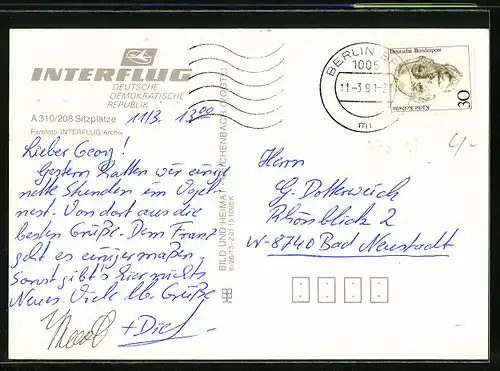 INTERFLUG
DEUTSCHE
DEMOKRATISCHE
REPUBLIK
A 310/208 Sitzplätze
Farbfoto INTERFLUG/Archiv
11/3 13.00
Lieber Georg!
Gestern hatten wir einige
nette Stunden im Vogel-
nest. Von dort aus die
besten Grüße. Dem Franz
geht es einigermaßen.
Sonst gibt's hier nichts
Neues. Viele lb. Grüße
+
BILD UND HEIMAT REICHENBACH (VOGTL)
BERLIN
1085
11-3.91-2
mi
Deutsche Bundespost
Käthe Kollwitz
30
4,-
Herrn
G. Dotterweich
Rhönblick 2
W-8740 Bad Neustadt